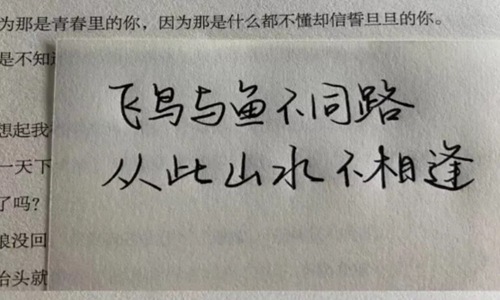 为那是青春里的你，因为那是什么都不懂却信誓旦旦的你。
是不知
飞鸟与鱼不同路
想起我
从此山水不相逢
一天下
了吗？
没回
抬头就